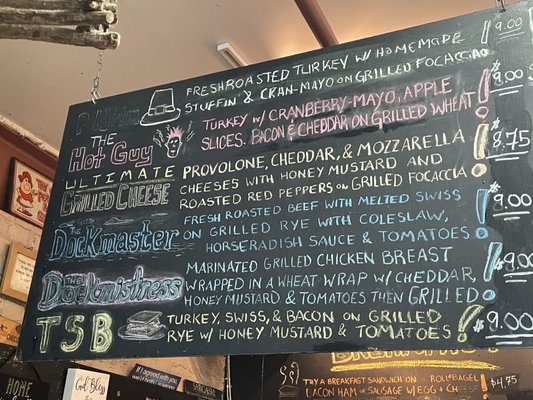 PILGRIM
FRESH ROASTED TURKEY W/ HOMEMADE
STUFFIN' & CRAN-MAYO ON GRILLED FOCACCIA
9.00
THE
HOT GUY
TURKEY W/ CRANBERRY-MAYO, APPLE
SLICES, BACON & CHEDDAR ON GRILLED WHEAT
$9.00
ULTIMATE
GRILLED CHEESE
PROVOLONE, CHEDDAR, & MOZZARELLA
CHEESES WITH HONEY MUSTARD AND
ROASTED RED PEPPERS ON GRILLED FOCACCIA
$8.75
THE
DOCKMASTER
FRESH ROASTED BEEF WITH MELTED SWISS
ON GRILLED RYE WITH COLESLAW,
HORSERADISH SAUCE & TOMATOES
$9.00
THE
DOCKMISTRESS
MARINATED GRILLED CHICKEN BREAST
WRAPPED IN A WHEAT WRAP W/ CHEDDAR,
HONEY MUSTARD & TOMATOES THEN GRILLED
$9.00
TSB
TURKEY, SWISS, & BACON ON GRILLED
RYE W/ HONEY MUSTARD & TOMATOES
$9.00
TRY A BREAKFAST SANDWICH ON A ROLL/BAGEL
BACON HAM OR SAUSAGE W/ EGG + CHEESE
$4.75
God Bless